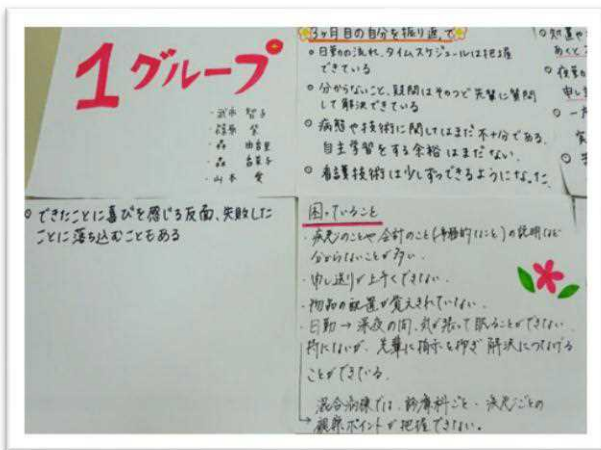 1グループ
・武市 智子
・篠原 栄
・森 由香里
・森 台菜子
・山本 愛
3ヶ月目の自分を振り返って
○日勤の流れ、タイムスケジュールは把握
できている
○分からないこと、疑問はそのつど先輩に質問
して解決できている
○病態や技術に関してはまだ不十分である。
自主学習をする余裕はまだない。
○看護技術は少しずつできるようになった。
○処置や
○夜勤の
申し
○一
○
○できたことに喜びを感じる反面、失敗した
ことに落ち込むこともある
困っていること
・疾患のことや会計のこと(事務的なこと)の説明など
分からないことが多い。
・申し送りが上手くできない。
・物品の配置が覚えきれていない。
・日勤→深夜の間、気が張って眠ることができない
特にないが、先輩に指示を仰ぎ解決につなげる
ことができている。
→混合病棟では、診療科ごと・疾患ごとの
観察ポイントが把握できない。